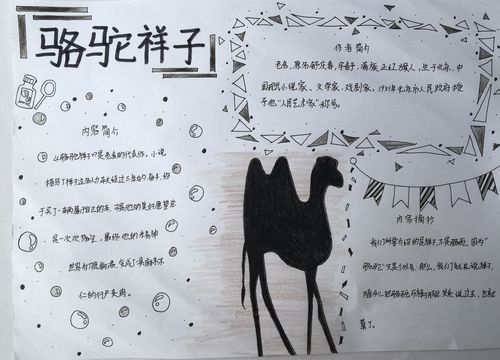 骆驼祥子
作者简介
老舍,原名舒庆春,字舍予,满族正红旗人,生于北京,中
国现代小说家、文学家、戏剧家,1951年北京市人民政府授
予他“人民艺术家”称号。
内容简介
《骆驼祥子》是老舍的代表作,小说
描写了祥子这名人力车夫经过三年的
于买了一辆属于自己的车,可是他的美好愿望总
是一次次
世界彻底崩溃,变成了
仁的行尸走肉。
内容摘抄
我们所要介绍的是祥子,不是骆驼,因为“
骆驼”只是个外号;那么,我们就先说祥子,
随手儿把骆驼与祥子那点关系说过去,也就
算了。